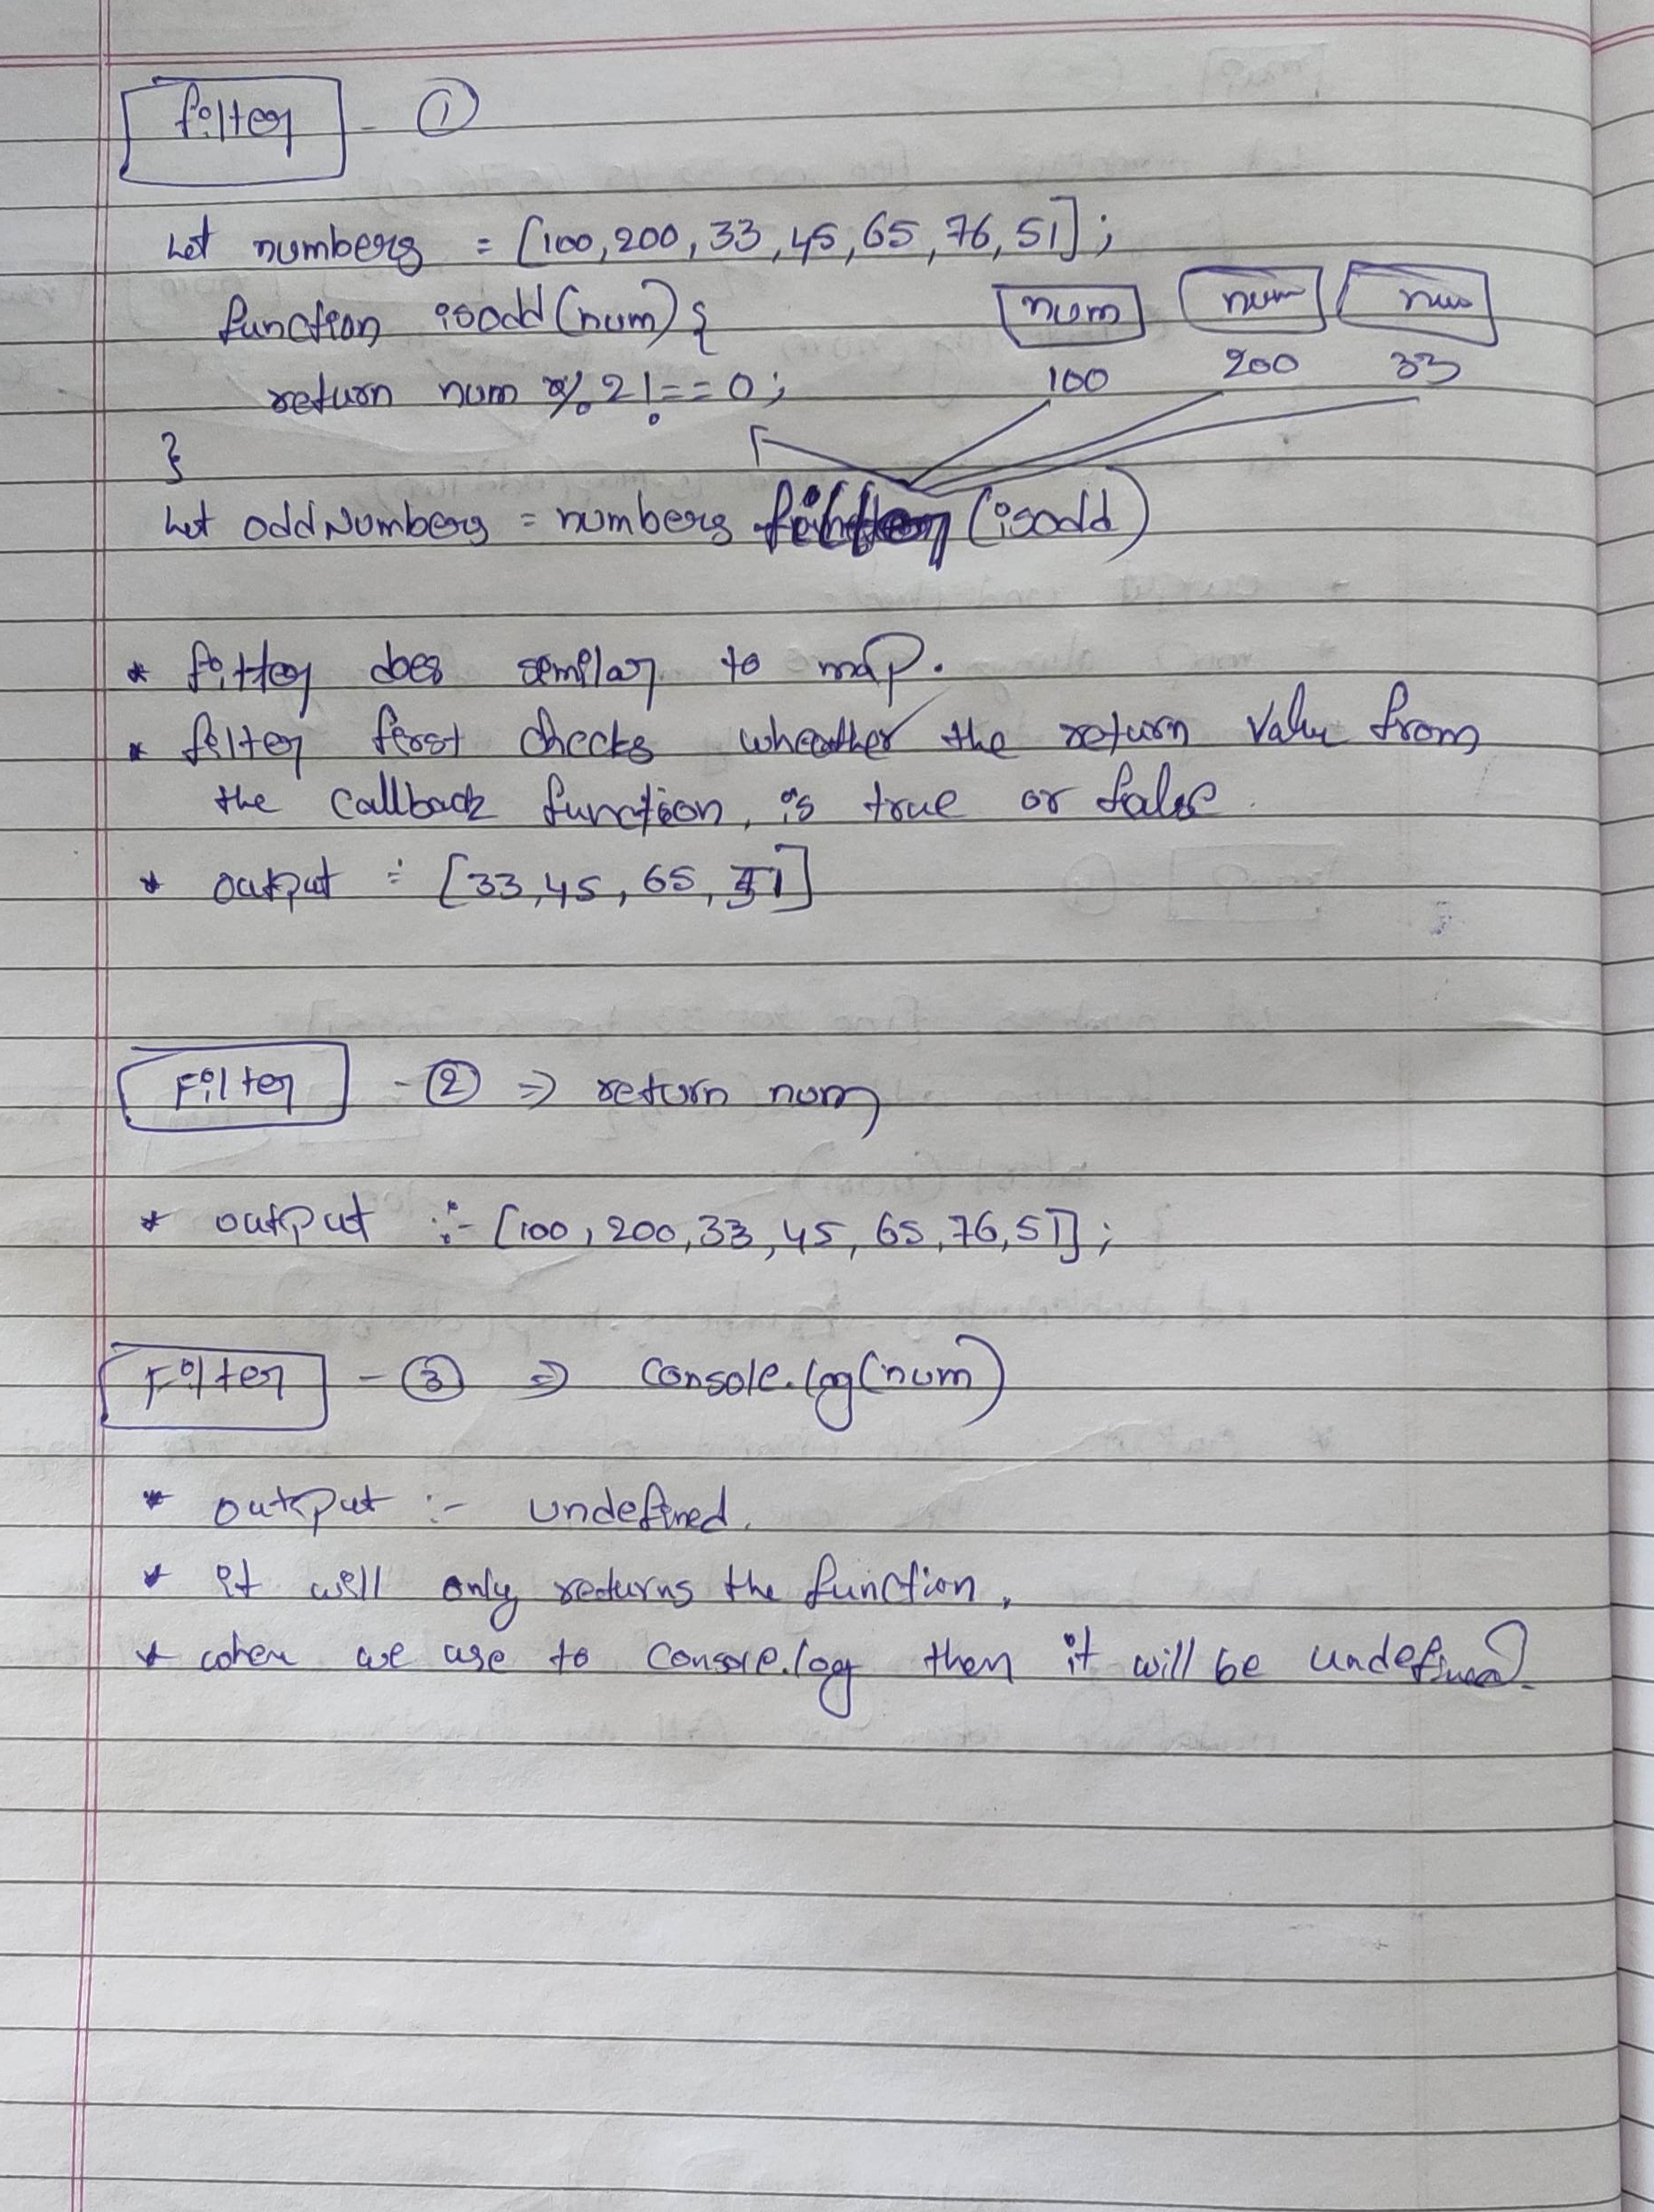 filter - ①
Let numbers = [100,200,33,45,65,76,51];
function isodd(num){
num num num
return num % 2 !== 0;
100 200 33
}
Let oddNumbers = numbers filter (isodd)
* filter does similar to map.
* filter first checks wheather the return value from
the callback function, is true or false.
* output : [33,45, 65, 51]
Filter - ② => return num
* output :- [100, 200,33,45, 65,76,51];
Filter - ③ => Console.log(num)
* output :- undefined.
* it will only returns the function.
* when we use to console.log then it will be undefined.